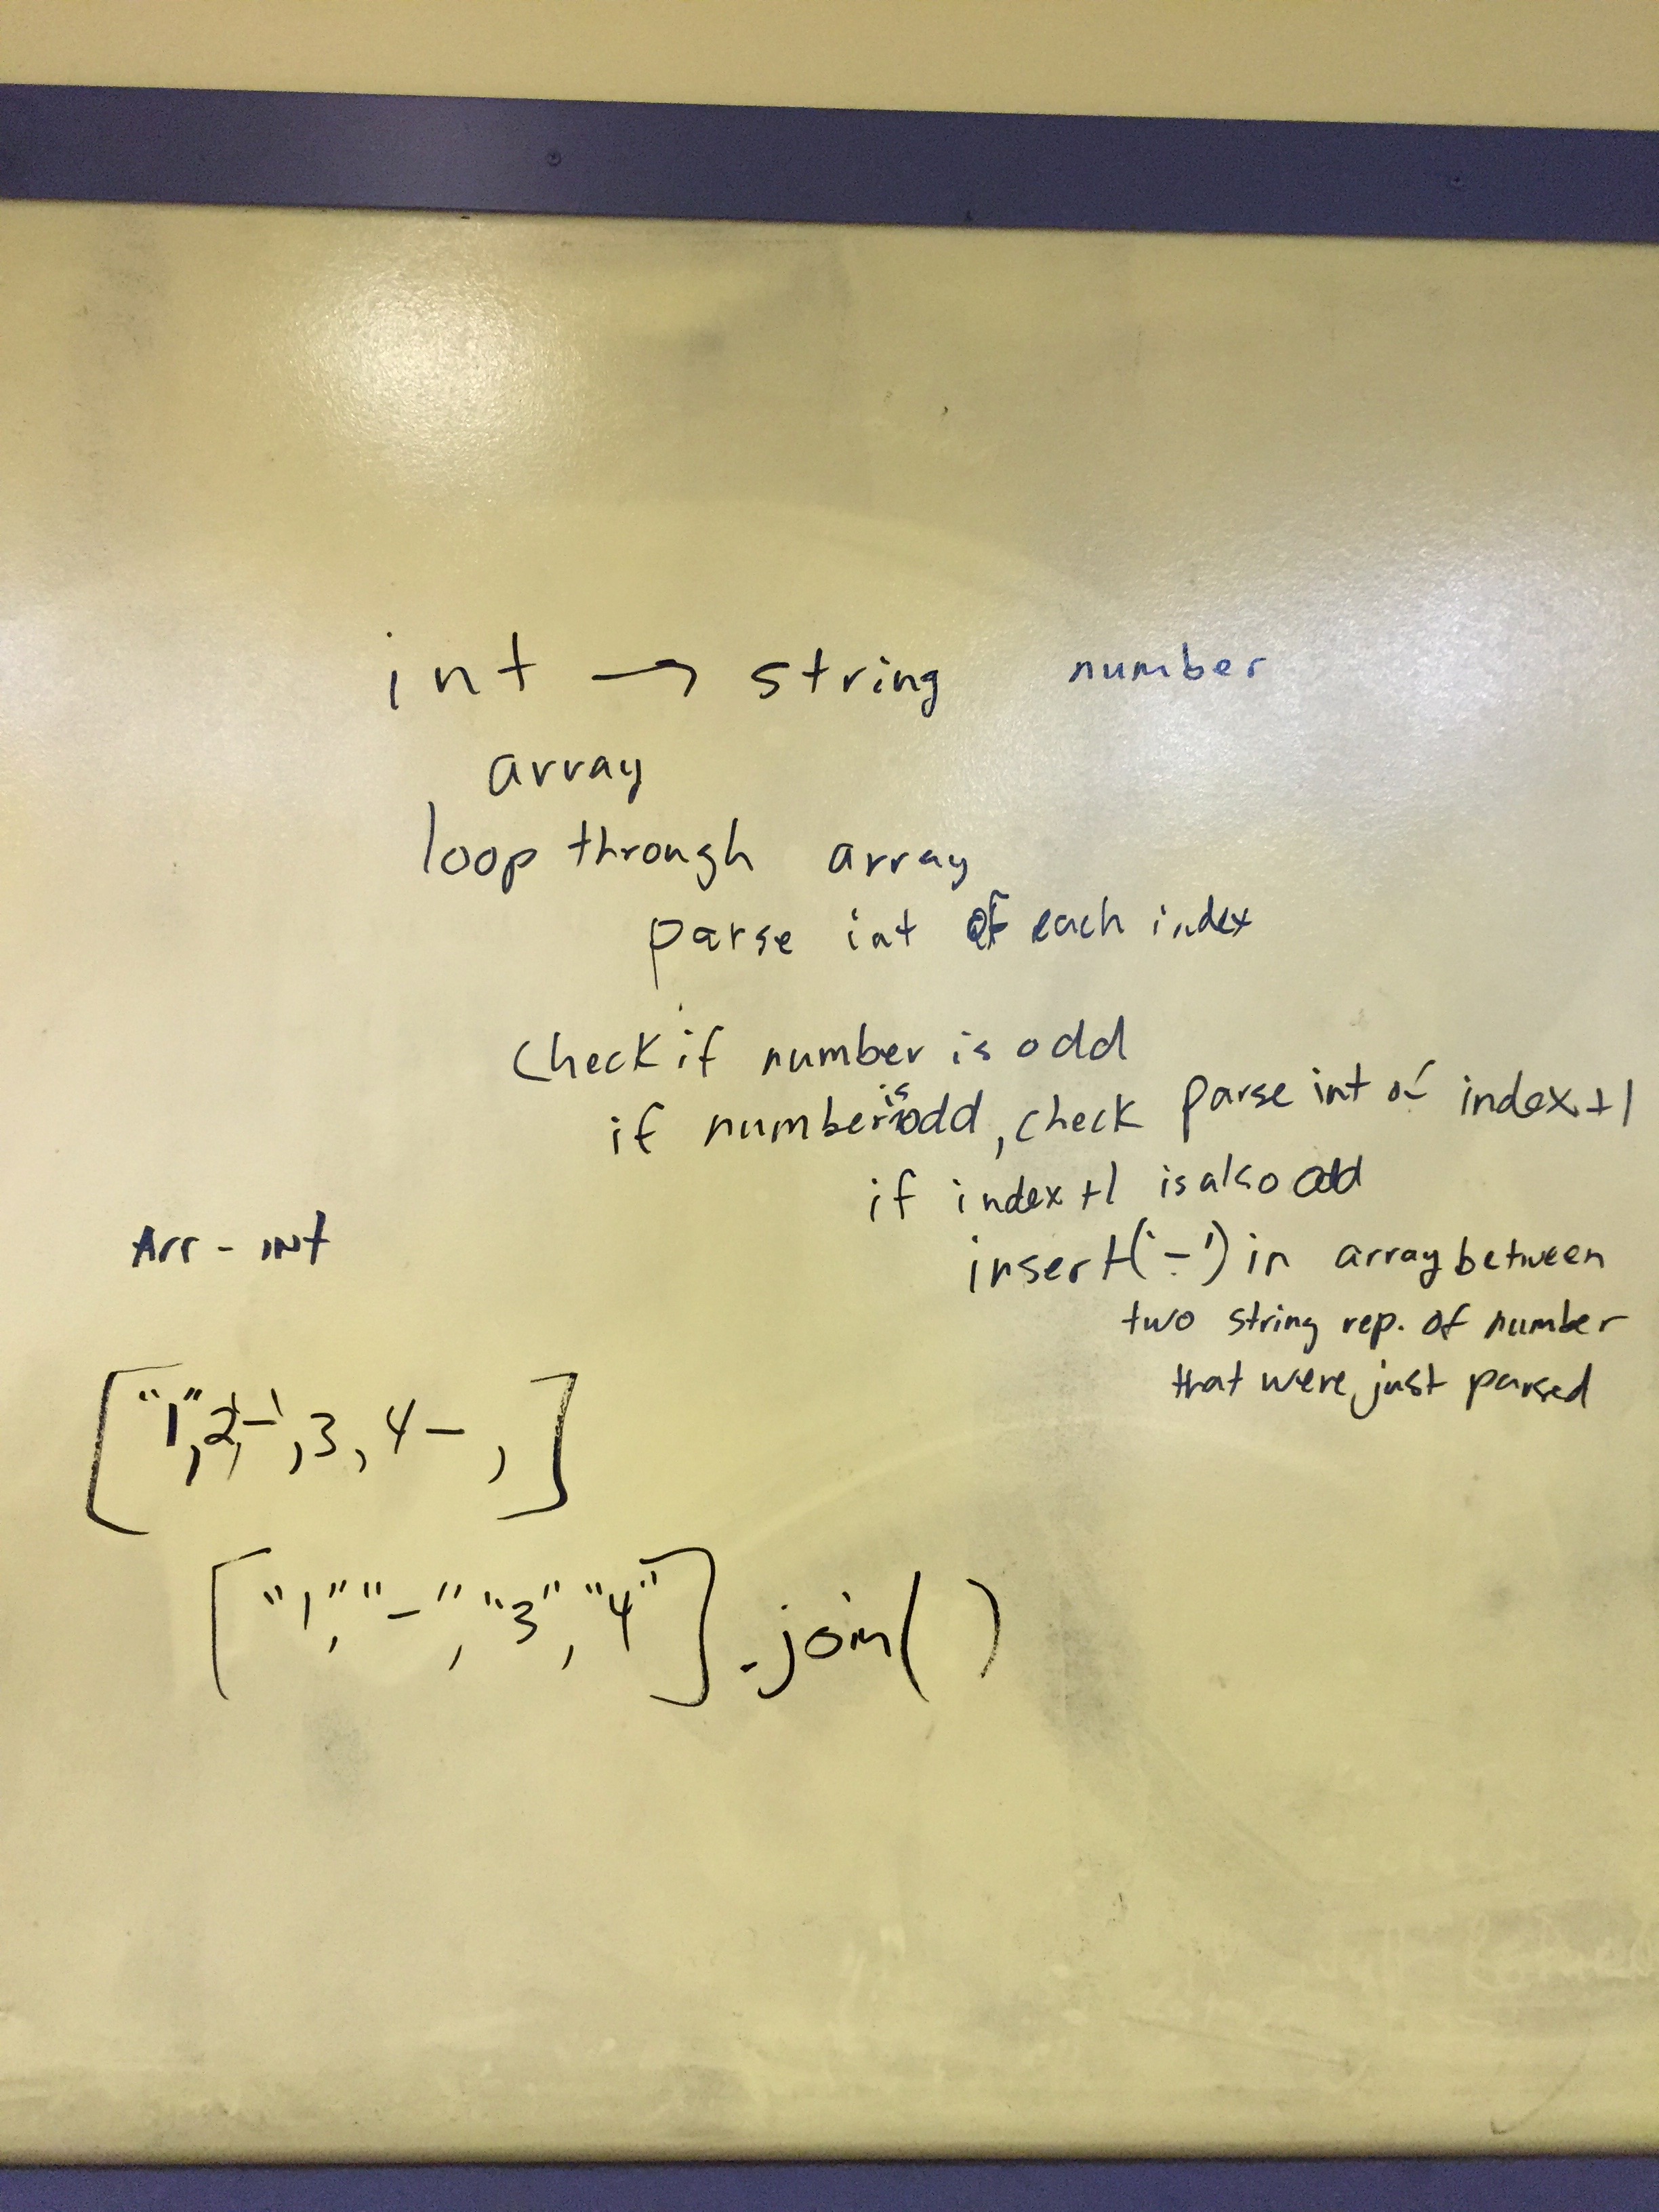 int → string number
array
loop through array
parse int of each index
check if number is odd
if number is odd, check parse int of index+1
if index+1 is also odd
insert('-') in array between
two string rep. of number
that were just parsed
Arr - INt
["1",2,'-',3,4-,]
["1","-","3","4"].join()